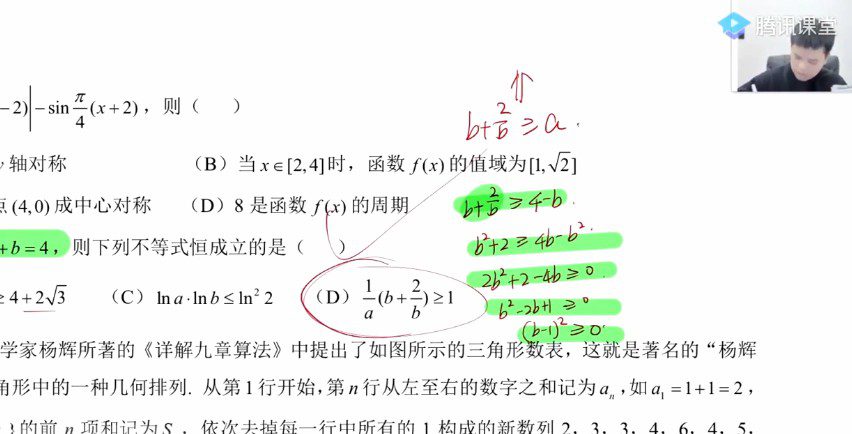 腾讯课堂
-2)|-sin π/4 (x+2)，则（ ）
b+2/b≥a.
轴对称 （B）当 x∈[2,4] 时，函数 f(x) 的值域为[1,√2]
点(4,0)成中心对称 （D）8 是函数 f(x) 的周期
b+2/b≥4-b.
+b=4，则下列不等式恒成立的是（ ）
b²+2≥4b-b².
2b²+2-4b≥0.
≥4+2√3 （C） ln a·ln b≤ln²2 （D） 1/a(b+2/b)≥1
b²-2b+1≥0
(b-1)²≥0.
学家杨辉所著的《详解九章算法》中提出了如图所示的三角形数表，这就是著名的“杨辉
角形中的一种几何排列. 从第1行开始，第 n 行从左至右的数字之和记为 aₙ，如 a₁=1+1=2，
的前 n 项和记为 S，依次去掉每一行中所有的 1 构成的新数列 2，3，3，4，6，4，5，